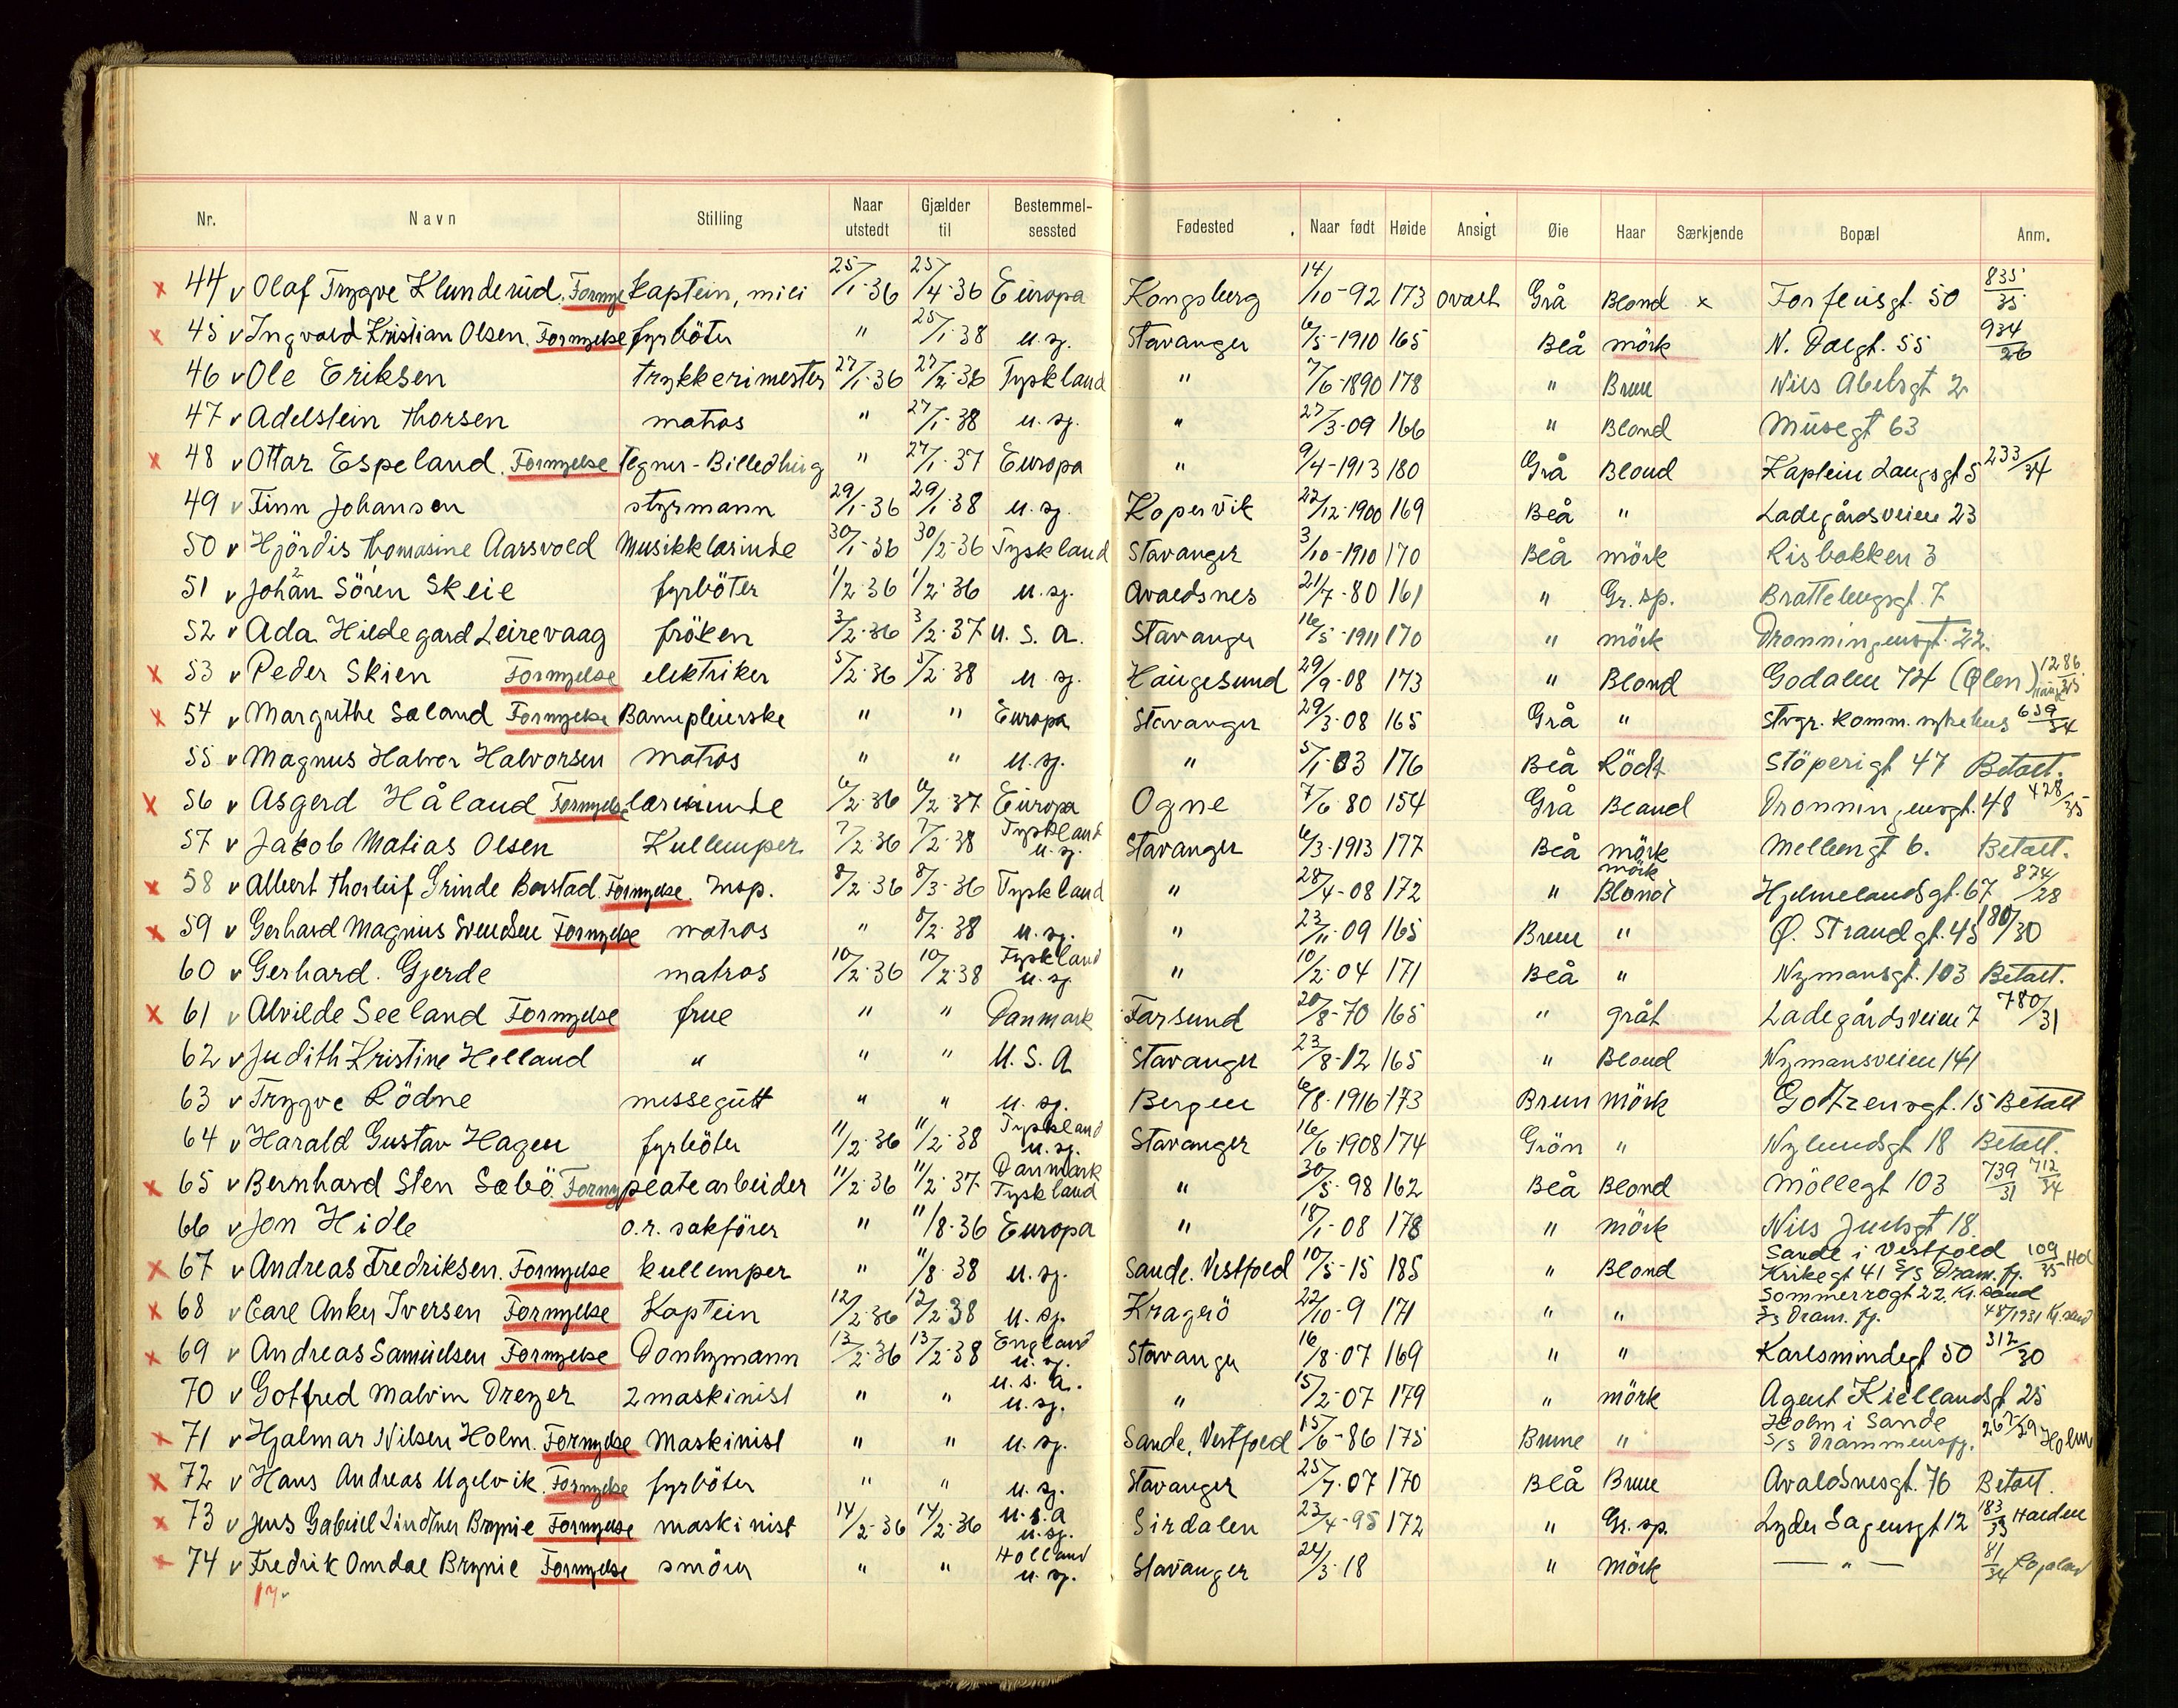 Nr. Navn Stilling Naar utstedt Gjælder til Bestemmel-sessted Fødested Naar født Høide Ansigt Øie Haar Særkjende Bopæl Anm.
x 44 v Olaf Trygve Klunderud. Fornye Kaptein, mili 25/1-36 25/4-36 Europa Kongsberg 14/10-92 173 ovalt Grå Blond x Torfeusgt. 50 835/35
x 45 v Ingvald Kristian Olsen. Fornyelse fyrböter " 25/1-38 u. sj. Stavanger 6/5-1910 165 Blå mörk N. Dalgt. 55 934/26
46 v Ole Eriksen trykkerimester 27/1-36 27/2-36 Tyskland " 7/6-1890 178 " Brun Nils Abelsgt 2
47 v Adelstein Thorsen matros " 27/1-38 u. sj. " 27/3-09 166 " Blond Musegt 63
x 48 v Ottar Espeland. Fornyelse Tegner-Billedhug " 27/1-37 Europa " 9/4-1913 180 Grå Blond Kaptein Langsgt 5 233/34
49 v Finn Johansen styrmann 29/1-36 29/1-38 u. sj. Kopervik 22/12-1900 169 Blå " Ladegårdsveien 23
50 v Hjördis Thomasine Aarsvold Musikklærinde 30/1-36 30/2-36 Tyskland Stavanger 3/10-1910 170 Blå mörk Risbakken 3
51 v Johan Sören Skeie fyrböter 1/2-36 1/2-36 u. sj. Avaldsnes 21/7-80 161 " Gr. sp. Brattebergsgt. 7
52 v Ada Hildegard Leirevaag fröken 3/2-36 3/2-37 U. S. A. Stavanger 16/5-1911 170 " mörk Dronningensgt. 22.
x 53 v Peder Skien Fornyelse elektriker 5/2-36 5/2-38 u. sj. Haugesund 29/9-08 173 " Blond Godalen 74 (Ølen) 1286/35
x 54 v Margrethe Sæland Fornyelse Barnepleierske " " Europa Stavanger 29/3-08 165 Grå " Stvgr. Komm. sykehus 659/34
55 v Magnus Halvor Halvorsen matros " " u. sj. " 5/1-03 176 Blå Rödt Stöperigt 47 Betalt.
x 56 v Asgerd Håland Fornyelse lærerinde 6/2-36 6/2-37 Europa Ogne 7/6-80 154 Grå Blond Dronningensgt. 48 428/35
57 v Jakob Matias Olsen Kullemper 7/2-36 7/2-38 Tyskland u. sj. Stavanger 6/3-1913 177 Blå mörk Mellemgt 6. Betalt.
x 58 v Albert Thorleif Grinde Barstad. Fornyelse. Insp. 8/2-36 8/3-36 Tyskland " 28/4-08 172 " mörk Blond Hjelmelandsgt. 67 874/28
x 59 v Gerhard Magnus Svendsen Fornyelse matros " 8/2-38 u. sj. " 23/11-09 165 Brun " Ø. Strandgt. 45 180/30
60 v Gerhard. Gjerde matros 10/2-36 10/2-38 Tyskland u. sj " 10/2-04 171 Blå " Nymansgt. 103 Betalt.
x 61 v Alvilde Seeland Fornyelse frue " " Danmark Farsund 20/8-70 165 " gråt Ladegårdsveien 7 780/31
62 v Judith Kristine Helland " " " U. S. A Stavanger 23/8-12 165 " Blond Nymansveien 141
63 v Trygve Rödne messegutt " " u. sj. Bergen 6/8-1916 173 Brun Mörk Gottzensgt. 15 Betalt
64 v Harald Gustav Hagen fyrböter 11/2-36 11/2-38 Tyskland u. sj. Stavanger 16/6-1908 174 Grön " Nylundsgt 18 Betalt.
x 65 v Bernhard Sten Sæbö Forny platearbeider 11/2-36 11/2-37 Danmark Tyskland " 30/5-98 162 Blå Blond Möllegt 103 739/31 712/34
66 v Jon Hidle o.r. sakförer " 11/8-36 Europa " 18/1-08 178 " mörk Nils Juelsgt 18.
x 67 v Andreas Fredriksen. Fornyelse kullemper " 11/8-38 u. sj. Sande. Vestfold 10/5-15 185 " Blond Sande i Vestfold Kirkegt 41 S/S Dram. fj. 109/35 Hol
x 68 v Carl Anker Iversen Fornyelse Kaptein 12/2-36 12/2-38 u. sj. Kragerö 22/10-9 171 " " Sommerrogt 22. Kr. sand S/S Dram. fj. 48/1931 Kr. sand
x 69 v Andreas Samuelsen Fornyelse Donkymann 13/2-36 13/2-38 England u. sj. Stavanger 16/8-07 169 " " Karlsmindegt 50 312/30
70 v Gotfred Malvin Dreyer 2 maskinist " " U. S. A. u. sj. " 15/2-07 179 " mörk Agent Kiellandsgt 25
x 71 v Hjalmar Nilsen Holm. Fornyelse Maskinist " " u. sj. Sande, Vestfold 15/6-86 175 Brune " Holm i Sande S/S Drammensfj. 267/29 Holm
x 72 v Hans Andreas Ugelvik. Fornyelse fyrböter " " u. sj. Stavanger 25/7-07 170 Blå Brun Avaldsnesgt. 76 Betalt.
x 73 v Jens Gabriel Lindtner Brynie Fornyelse maskinist 14/2-36 14/2-36 U. S. A u. sj. Sirdalen 23/4-95 172 " Gr. sp. Lyder Sagensgt 12 183/33 Halden
x 74 v Fredrik Omdal Brynie Fornyelse smörer " " Holland u. sj. Stavanger 24/3-18 " Mörk — " — 81/34 Rogaland